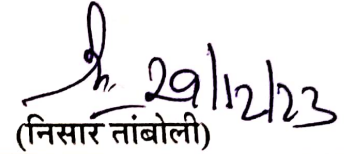 29/12/23
(निसार तांबोली)